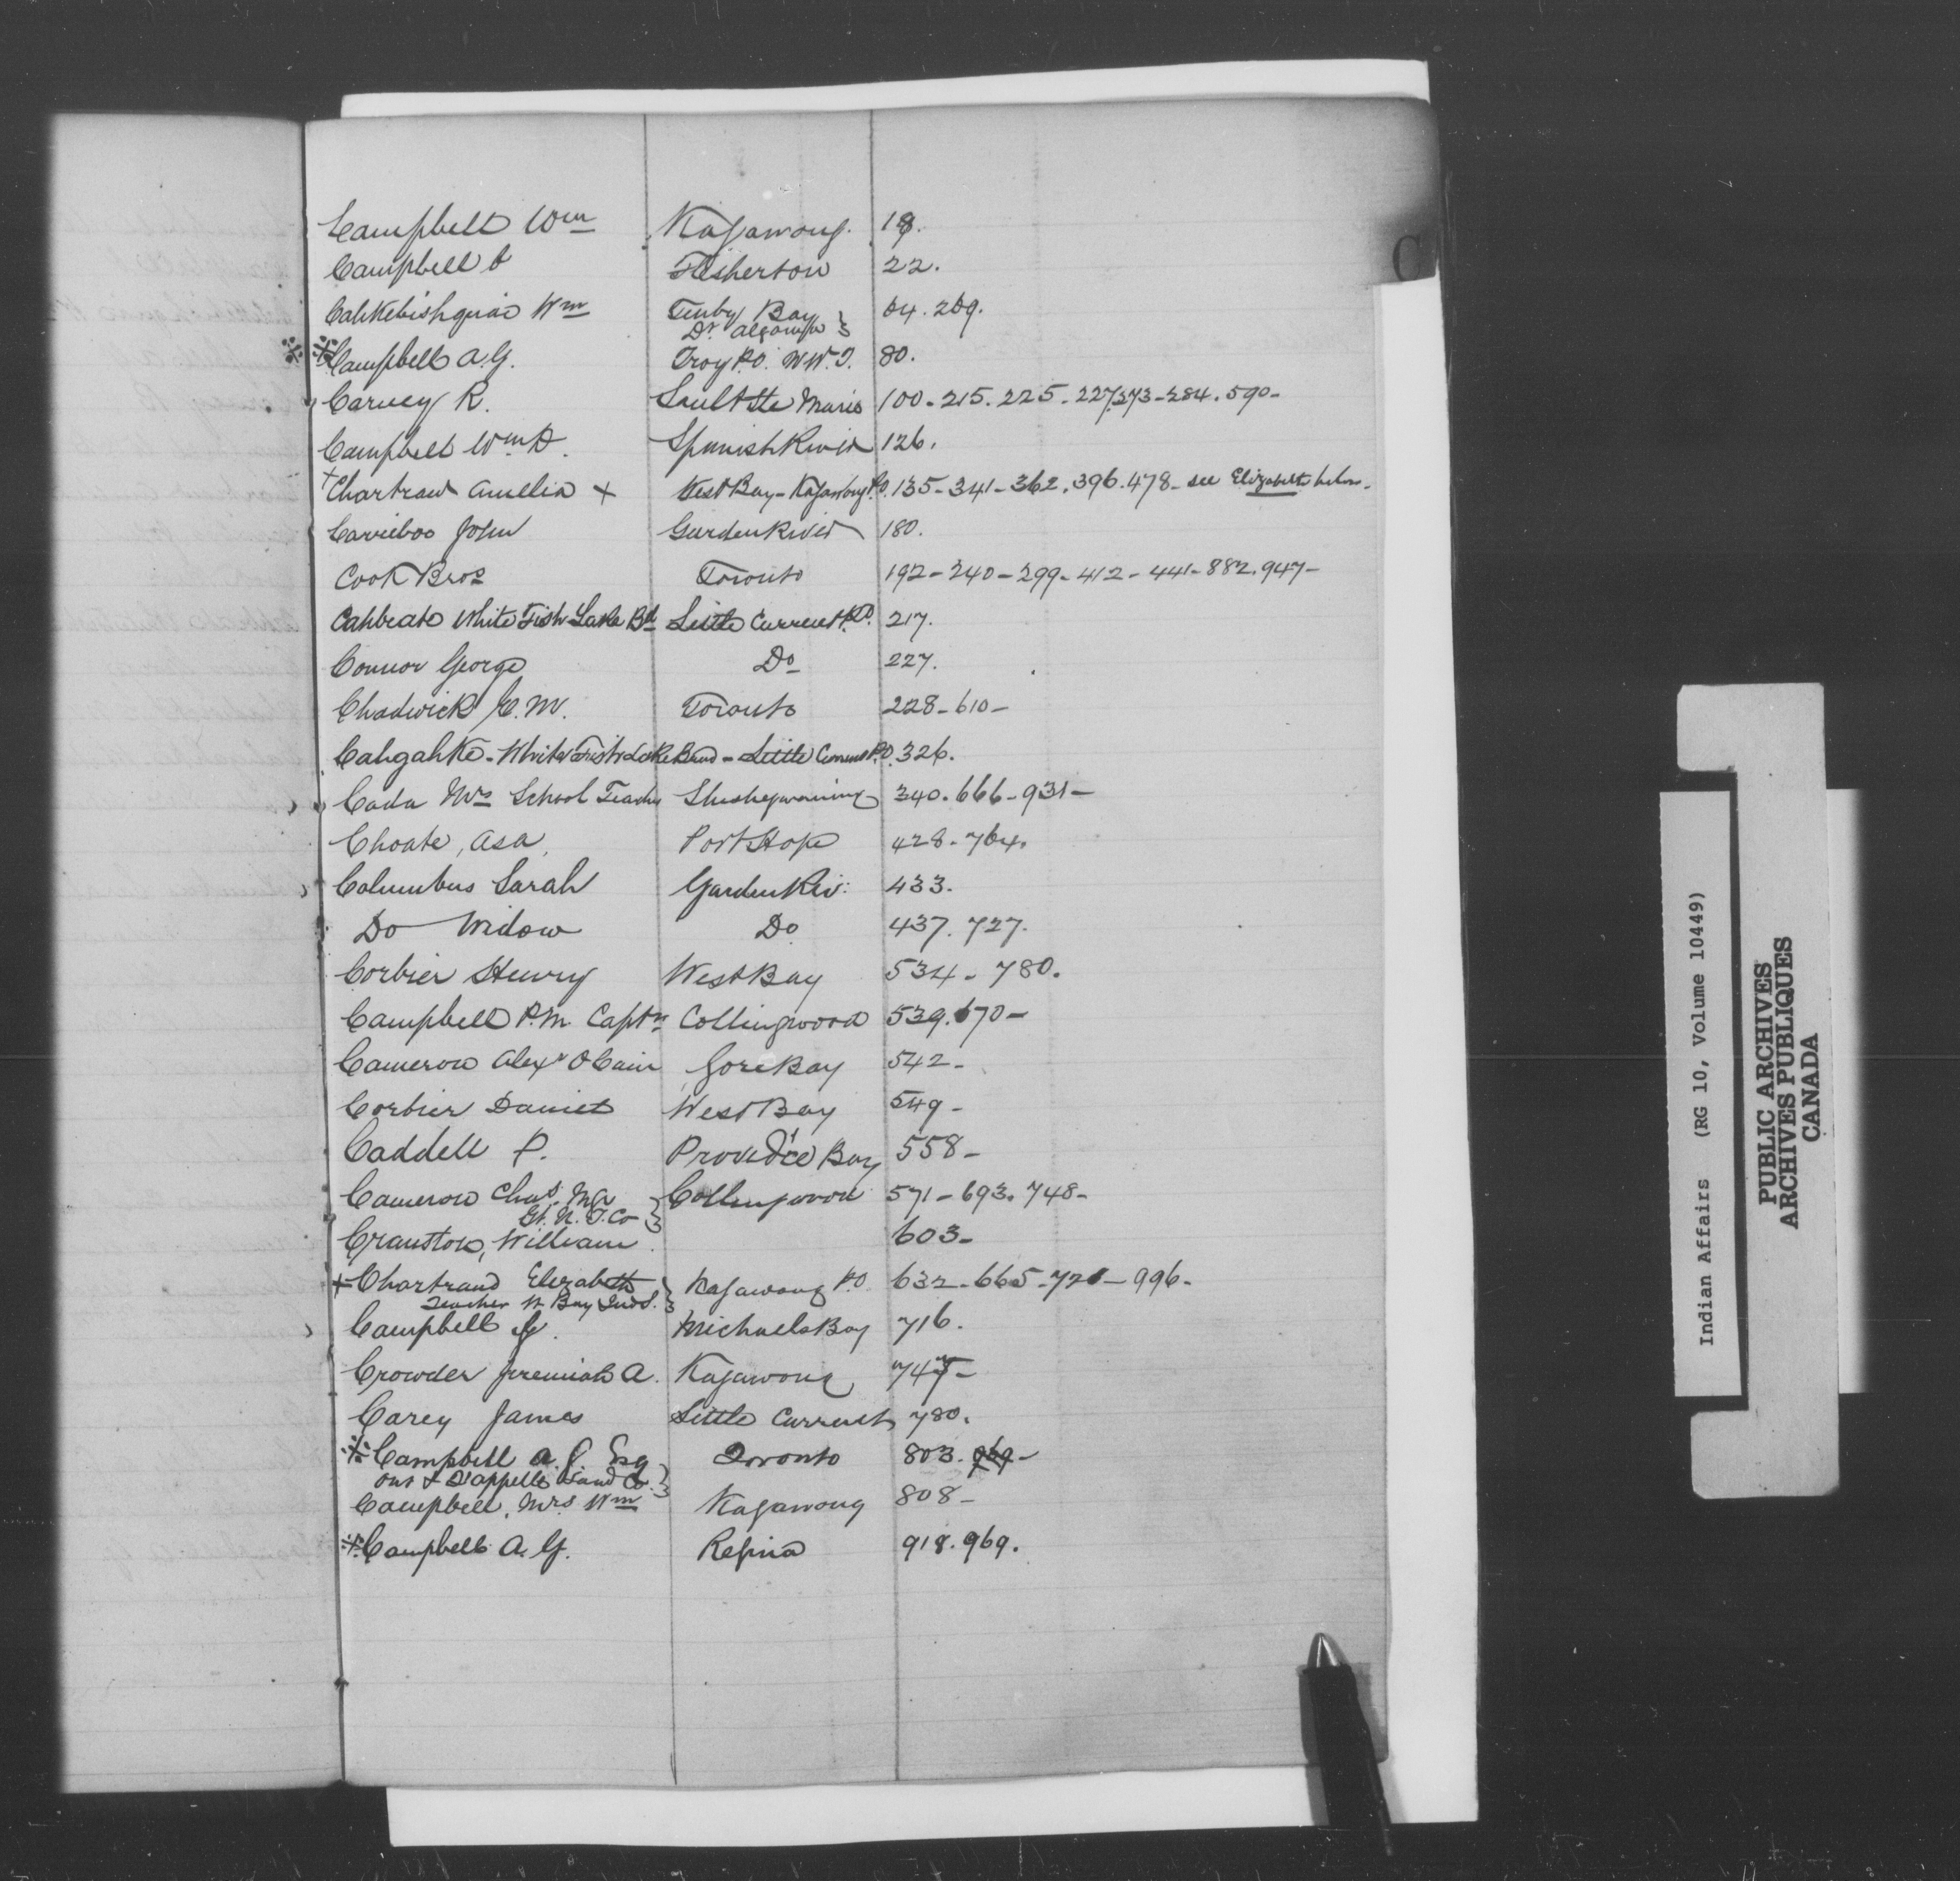 C
Campbell Wm Kagawong. 18.
Campbell Flesherton 22.
Cahkebishquai Wm Tenby Bay 64. 269.
Dt. Algoma
※ Campbell A.G. Troy P.O. N.W.T. 80.
Carney R. Sault Ste Marie 100-215.225-227.273-284.590-
Campbell Wm Spanish River 126.
+ Chartrand Amelia + West Bay - Kagawong P.O. 135-341-362.396.478- see Elizabeth below.
Carrieboo John Garden River 180.
Cook Bros Toronto 192-240-299-412-441-882.947-
Cahbeato White Fish Lake Bd Little Current P.O. 217.
Connor George Do 227.
Chadwick E.M. Toronto 228-610-
Cahgahke - White Fish Lake Band - Little Current P.O. 326.
Cada Mrs School Teacher Sheshegwaning 340.666-931-
Choate, Asa, Port Hope 428-764.
Columbus Sarah Garden Riv: 433.
Do Widow Do 437. 727.
Corbier Henry West Bay 534- 780.
Campbell P.M. Captn Collingwood 539.670-
Cameron Alexr Gore Bay 542-
Corbier Daniel West Bay 549-
Caddell P. Provid'ce Bay 558-
Cameron Chas. Mgr Collingwood 571-693.748-
Gt. N. T. Co
Cranston, William 603-
+ Chartrand Elizabeth Kagawong P.O. 632-665-721-996-
Teacher W. Bay Ind S.
Campbell J. Michaels Bay 716.
Crowder Jeremiah A. Kagawong 747-
Carey James Little Current 780.
※ Campbell A. G. Esq Toronto 803. 969-
Ont & Q'appelle Land Co.
Campbell, Mrs Wm Kagawong 808-
※ Campbell A.G. Regina 918.969.
Indian Affairs (RG 10, Volume 10449)
PUBLIC ARCHIVES
ARCHIVES PUBLIQUES
CANADA